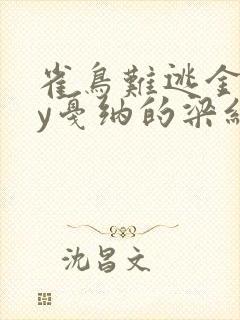 雀鳥難逃金
y戛纳的梁組
沈昌文